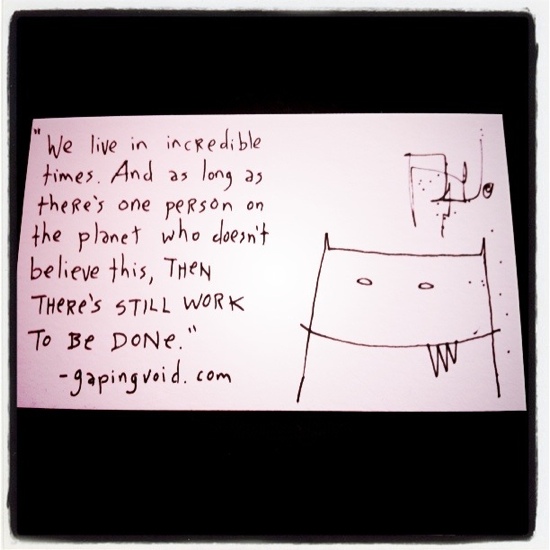 "We live in incredible
times. And as long as
there's one person on
the planet who doesn't
believe this, THEN
THERE'S STILL WORK
TO BE DONE."
-gapingvoid.com